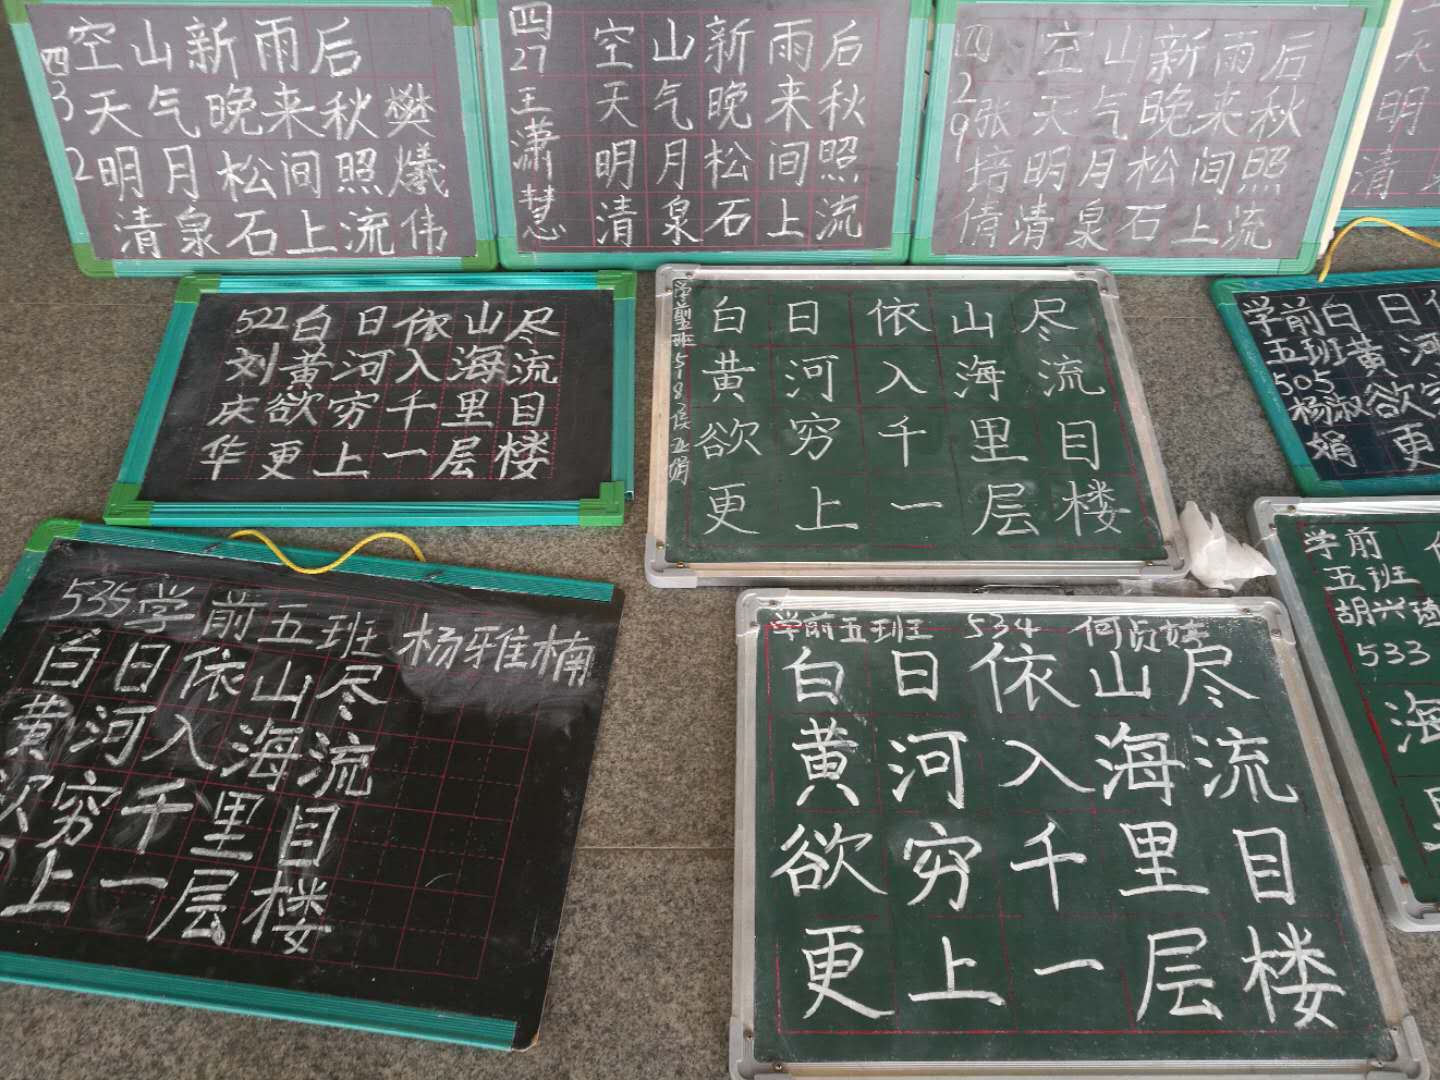 空山新雨后
四32
天气晚来秋
明月松间照
清泉石上流
樊爔伟
四27王潇慧
空山新雨后
天气晚来秋
明月松间照
清泉石上流
四29张培倩
空山新雨后
天气晚来秋
明月松间照
清泉石上流
天
明
清
522刘庆华
白日依山尽
黄河入海流
欲穷千里目
更上一层楼
学前五班518
白日依山尽
黄河入海流
欲穷千里目
更上一层楼
学前五班505杨淑娟
白日
黄河
欲穷
更
535学前五班杨雅楠
白日依山尽
黄河入海流
欲穷千里目
上一层楼
学前五班 534 何贞婕
白日依山尽
黄河入海流
欲穷千里目
更上一层楼
学前
五班
胡兴
533
海